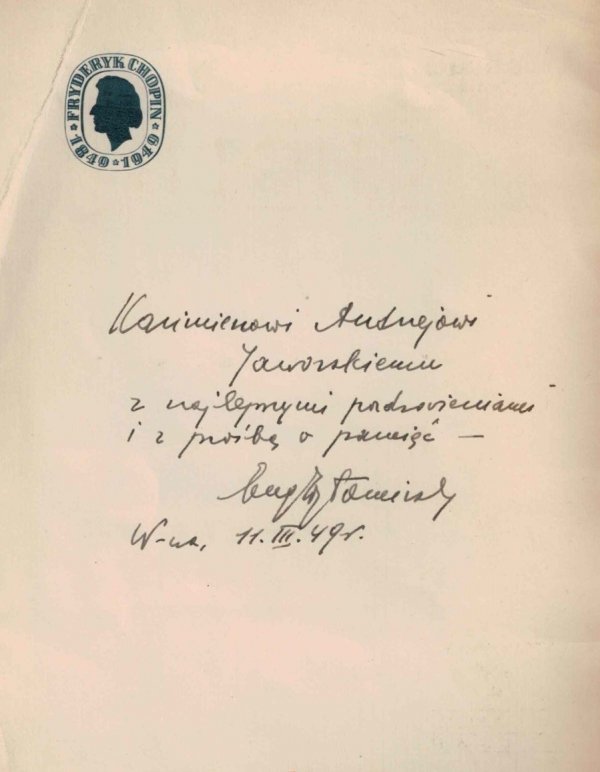 FRYDERYK CHOPIN
1849 * 1949
Kazimierzowi Andrzejowi
Jaworskiemu
z najlepszymi pozdrowieniami
i z prośbą o pamięć —
W-wa, 11. III. 49 r.